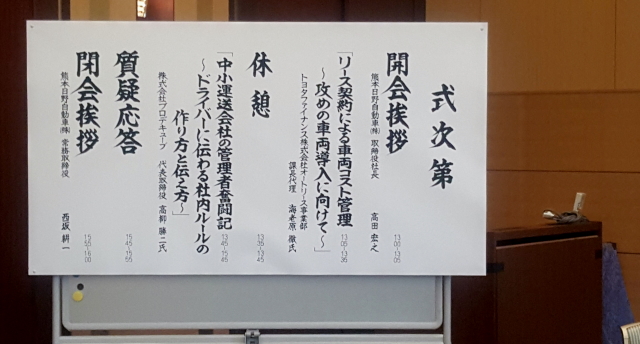 式次第
開会挨拶
熊本日野自動車㈱ 取締役社長 高田 宏之
13:00~13:05
「リース契約による車両コスト管理
~攻めの車両導入に向けて~」
13:05~13:35
トヨタファイナンス株式会社オートリース事業部
課長代理 海老原 徹氏
休憩
13:35~13:45
「中小運送会社の管理者奮闘記
~ドライバーに伝わる社内ルールの
作り方と伝え方~」
13:45~15:45
株式会社プロデキューブ 代表取締役 高栁 勝二氏
質疑応答
15:45~15:55
閉会挨拶
熊本日野自動車㈱ 常務取締役 西坂 耕一
15:55~16:00